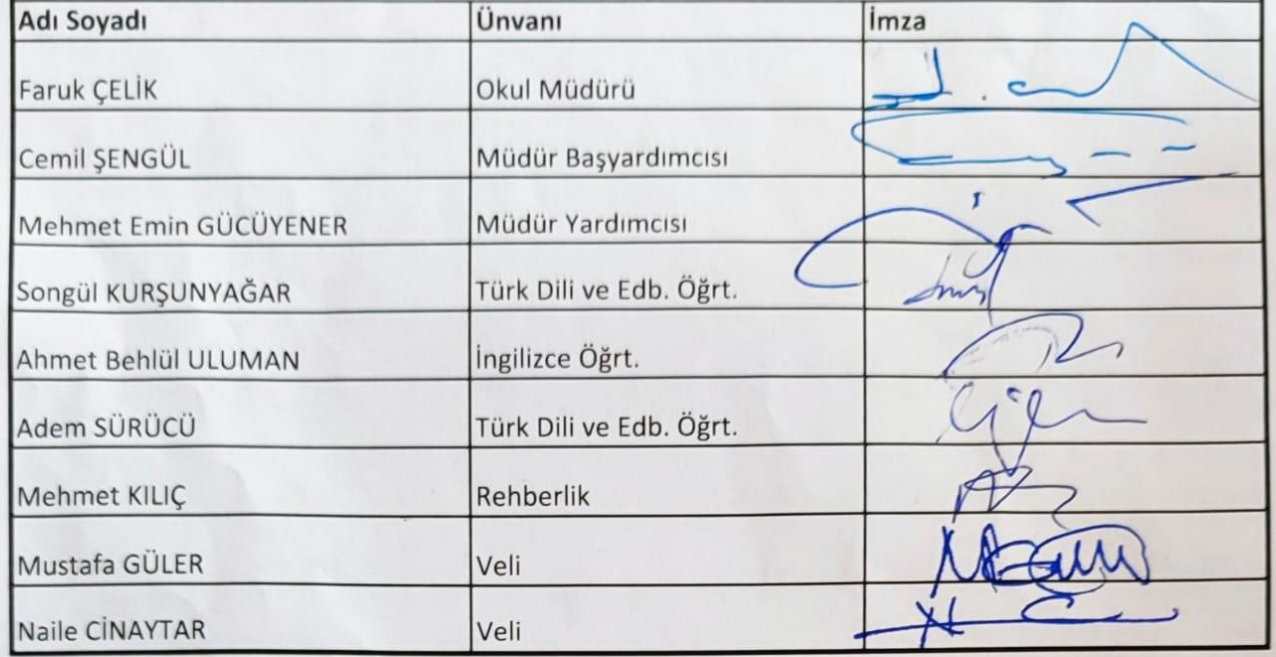 Adı Soyadı Ünvanı İmza
Faruk ÇELİK Okul Müdürü
Cemil ŞENGÜL Müdür Başyardımcısı
Mehmet Emin GÜCÜYENER Müdür Yardımcısı
Songül KURŞUNYAĞAR Türk Dili ve Edb. Öğrt.
Ahmet Behlül ULUMAN İngilizce Öğrt.
Adem SÜRÜCÜ Türk Dili ve Edb. Öğrt.
Mehmet KILIÇ Rehberlik
Mustafa GÜLER Veli
Naile CİNAYTAR Veli